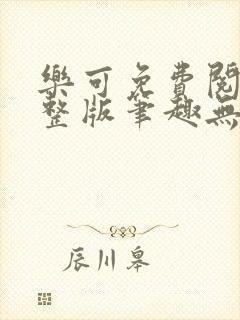 樂可免費閱
整版筆趣無
辰川皋